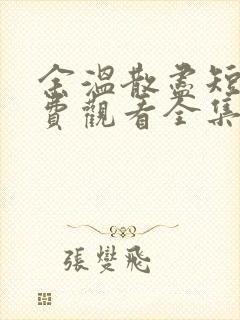 余溫散盡短
費觀看全集
張燮飛